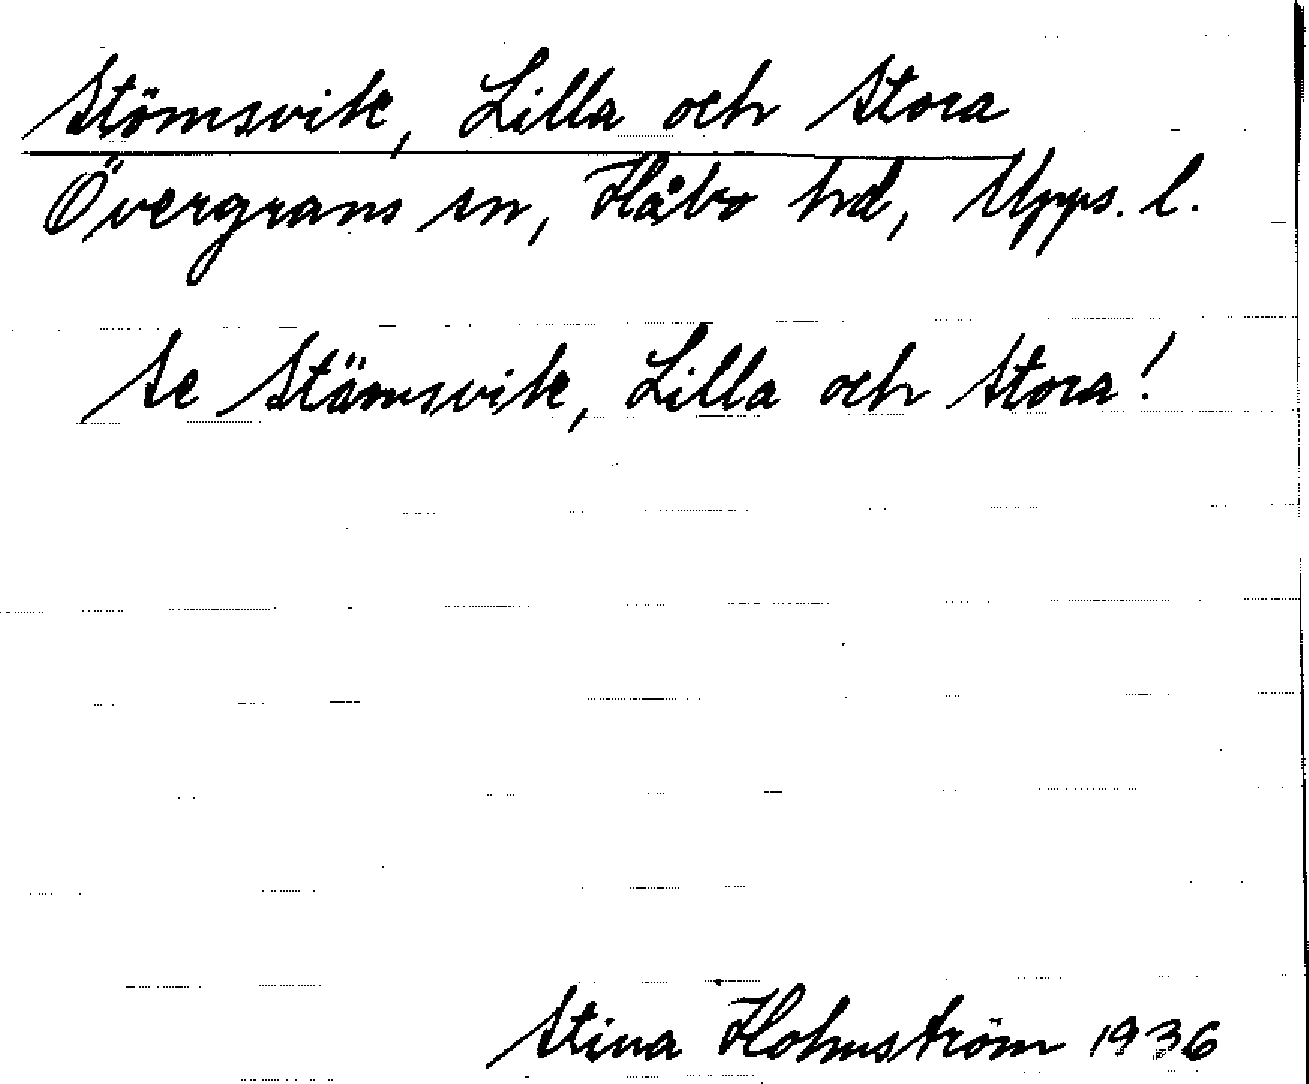 Stömsvik, Lilla och Stora
Övergrans sn, Håbo hd, Upps. l.
Se Stämsvik, Lilla och Stora!
Stina Holmström 1936